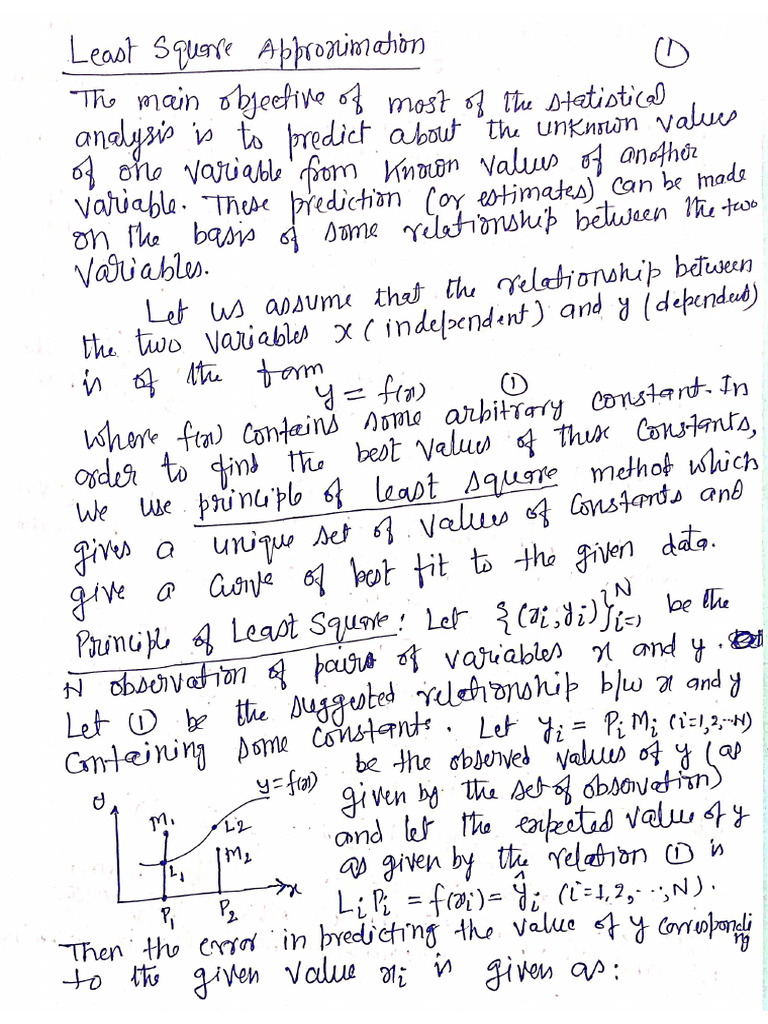 Least Square Approximation ①
The main objective of most of the statistical
analysis is to predict about the unknown values
of one variable from known values of another
variable. These prediction (or estimates) can be made
on the basis of some relationship between the two
variables.
Let us assume that the relationship between
the two variables x (independent) and y (dependent)
is of the form
y = f(x) ①
where f(x) contains some arbitrary constant. In
order to find the best values of these constants,
we use principle of least square method which
gives a unique set of values of constants and
give a curve of best fit to the given data.
Principle of Least Square: Let {(xi, yi)}ᴺi=1 be the
N observation of pairs of variables x and y.
Let ① be the suggested relationship b/w x and y
containing some constants. Let yi = PiMi (i=1,2,...N)
be the observed values of y (as
given by the set of observation)
and let the expected value of y
as given by the relation ① is
LiPi = f(xi) = ŷi (i=1,2,...,N).
y
y=f(x)
M1
L2
M2
L1
x
P1
P2
Then the error in predicting the value of y corresponding
to the given value xi is given as: